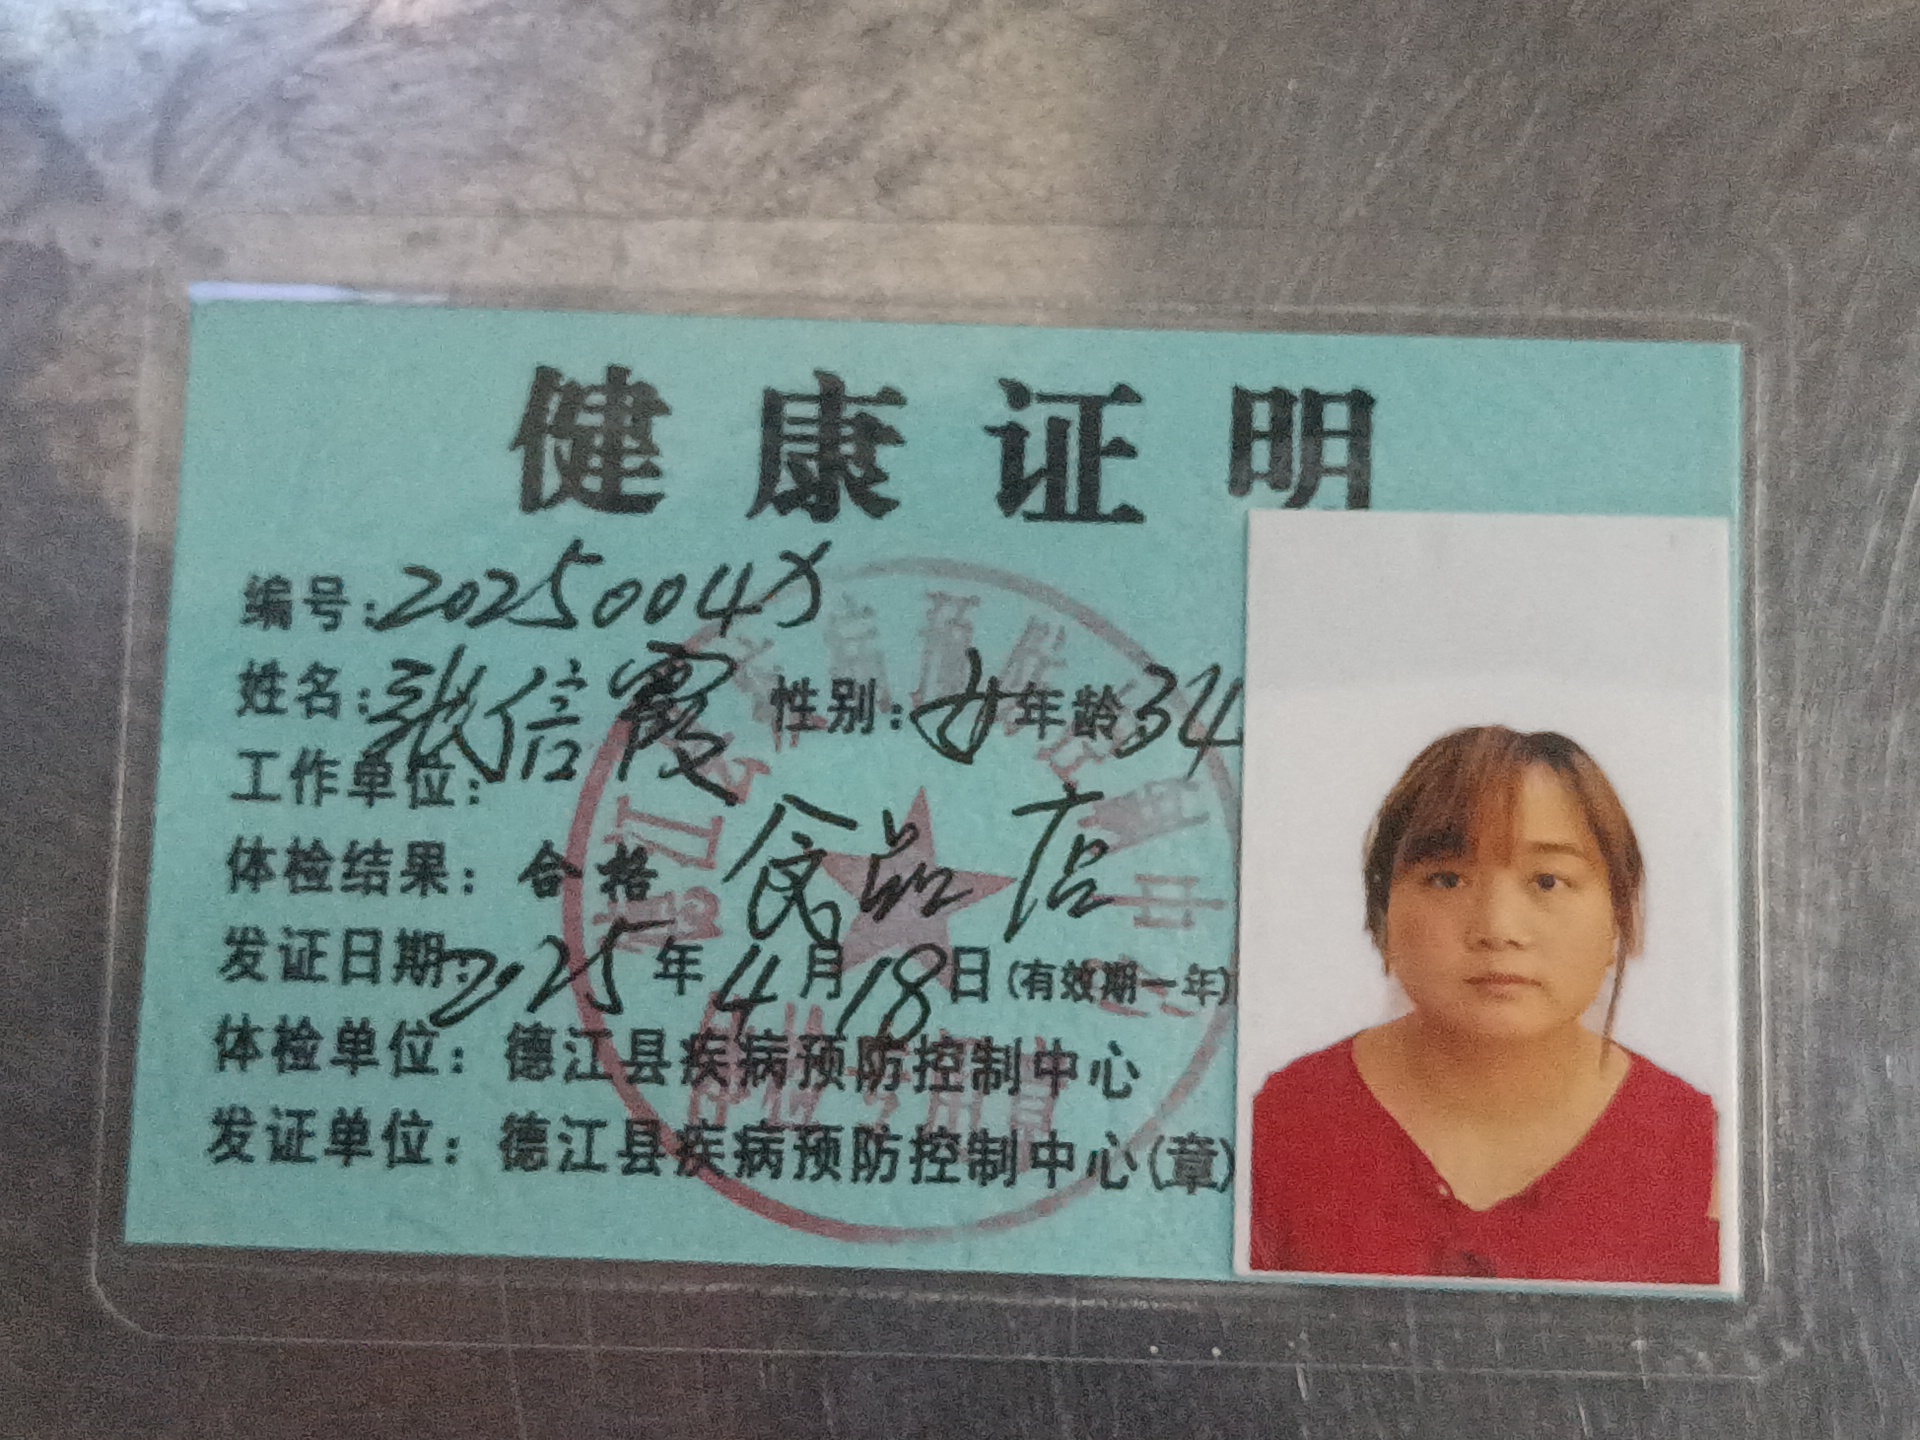 健康证明
编号:2025004
姓名:张信霞 性别:女 年龄34
工作单位:
食品店
体检结果:合格
发证日期:2025年4月18日(有效期一年)
体检单位:德江县疾病预防控制中心
发证单位:德江县疾病预防控制中心(章)